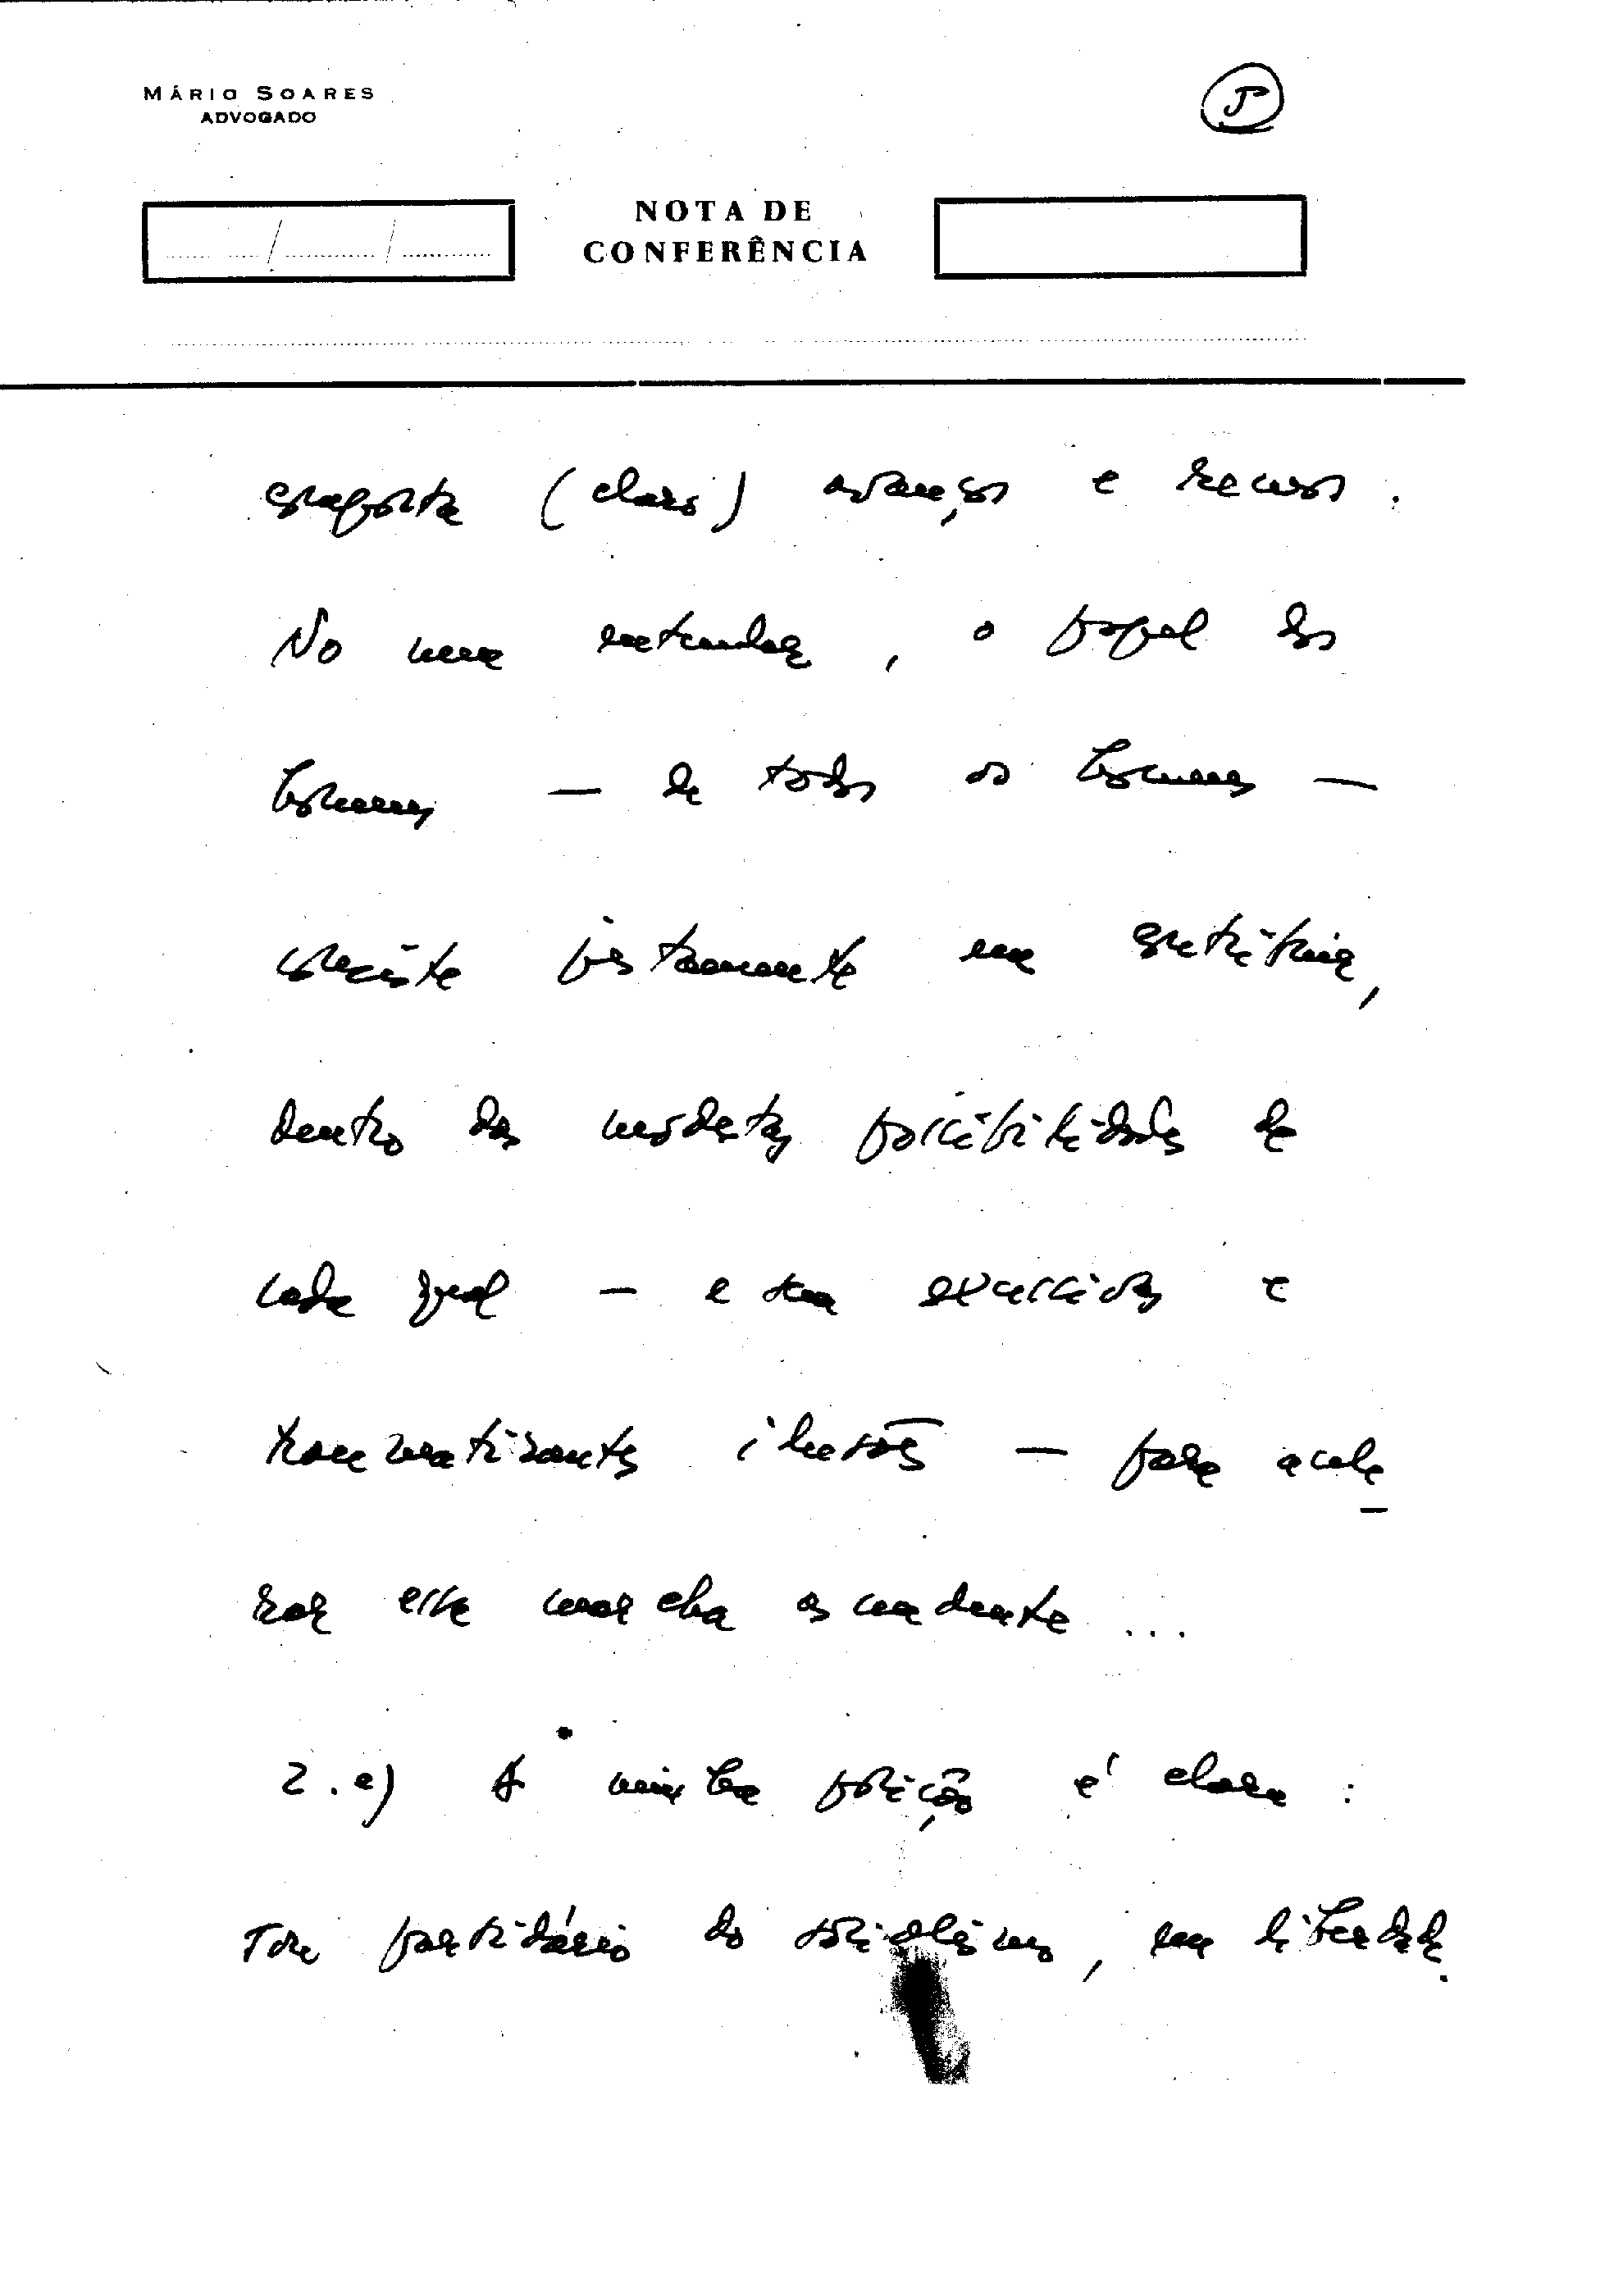 MÁRIO SOARES
ADVOGADO
5
NOTA DE
CONFERÊNCIA
comporta (claro) avanços e recuos.
No meu entender, o papel dos
homens — de todos os homens —
consiste justamente em contribuir,
dentro das modestas possibilidades de
cada qual — e sem excessivas e
traumatizantes ilusões — para acele
rar essa marcha ascendente ...
2.a) A minha posição é clara:
Sou partidário do socialismo, em liberdade.